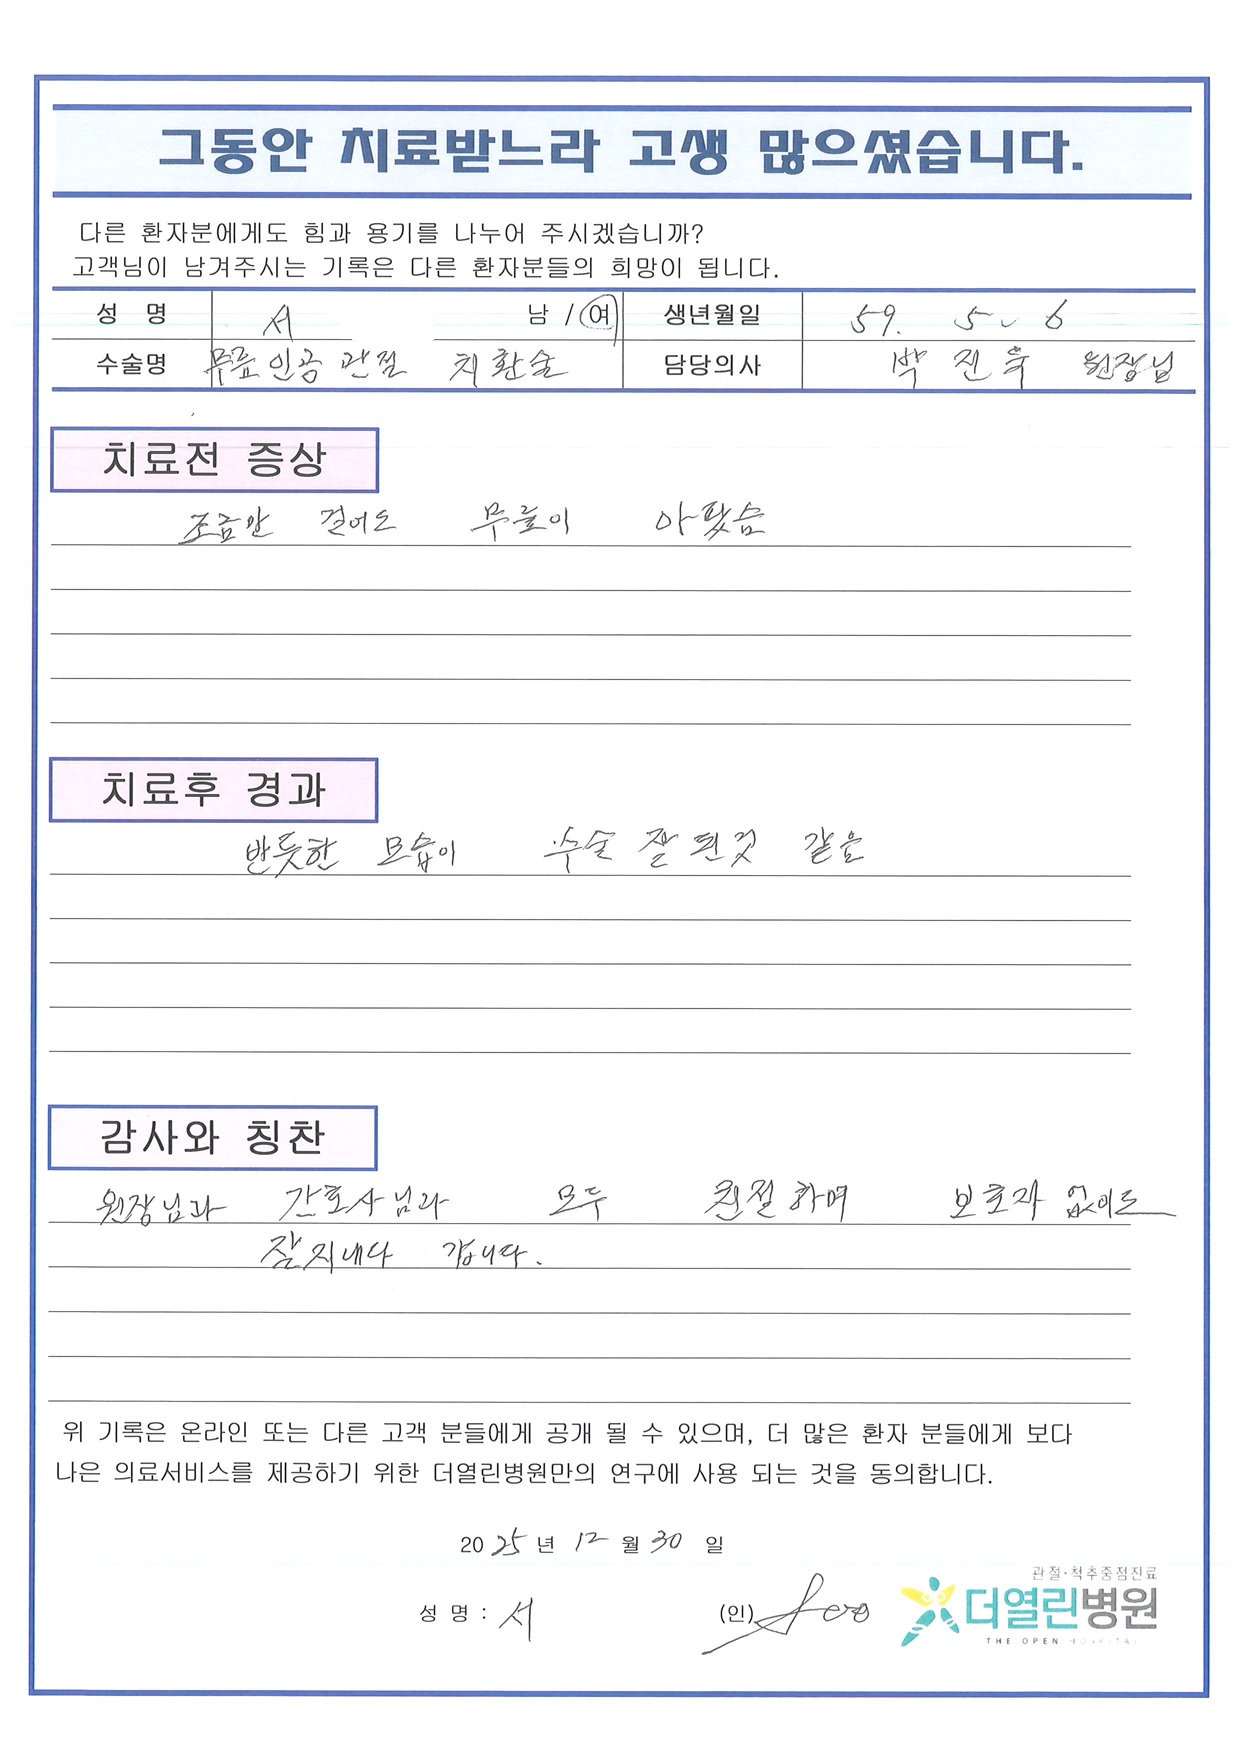 그동안 치료받느라 고생 많으셨습니다.
다른 환자분에게도 힘과 용기를 나누어 주시겠습니까?
고객님이 남겨주시는 기록은 다른 환자분들의 희망이 됩니다.
성 명 서 남 / 여 생년월일 59. 5. 6
수술명 무릎 인공 관절 치환술 담당의사 박진욱 원장님
치료전 증상
조금만 걸어도 무릎이 아팠슴
치료후 경과
반듯한 모습이 수술 잘 된것 같음
감사와 칭찬
원장님과 간호사님과 모두 친절하며 보호자 없이도
잘 지내다 갑니다.
위 기록은 온라인 또는 다른 고객 분들에게 공개 될 수 있으며, 더 많은 환자 분들에게 보다
나은 의료서비스를 제공하기 위한 더열린병원만의 연구에 사용 되는 것을 동의합니다.
2025년 12월 30일
관절·척추중점진료
성 명 : 서 (인) Seo 더열린병원
THE OPEN HOSPITAL